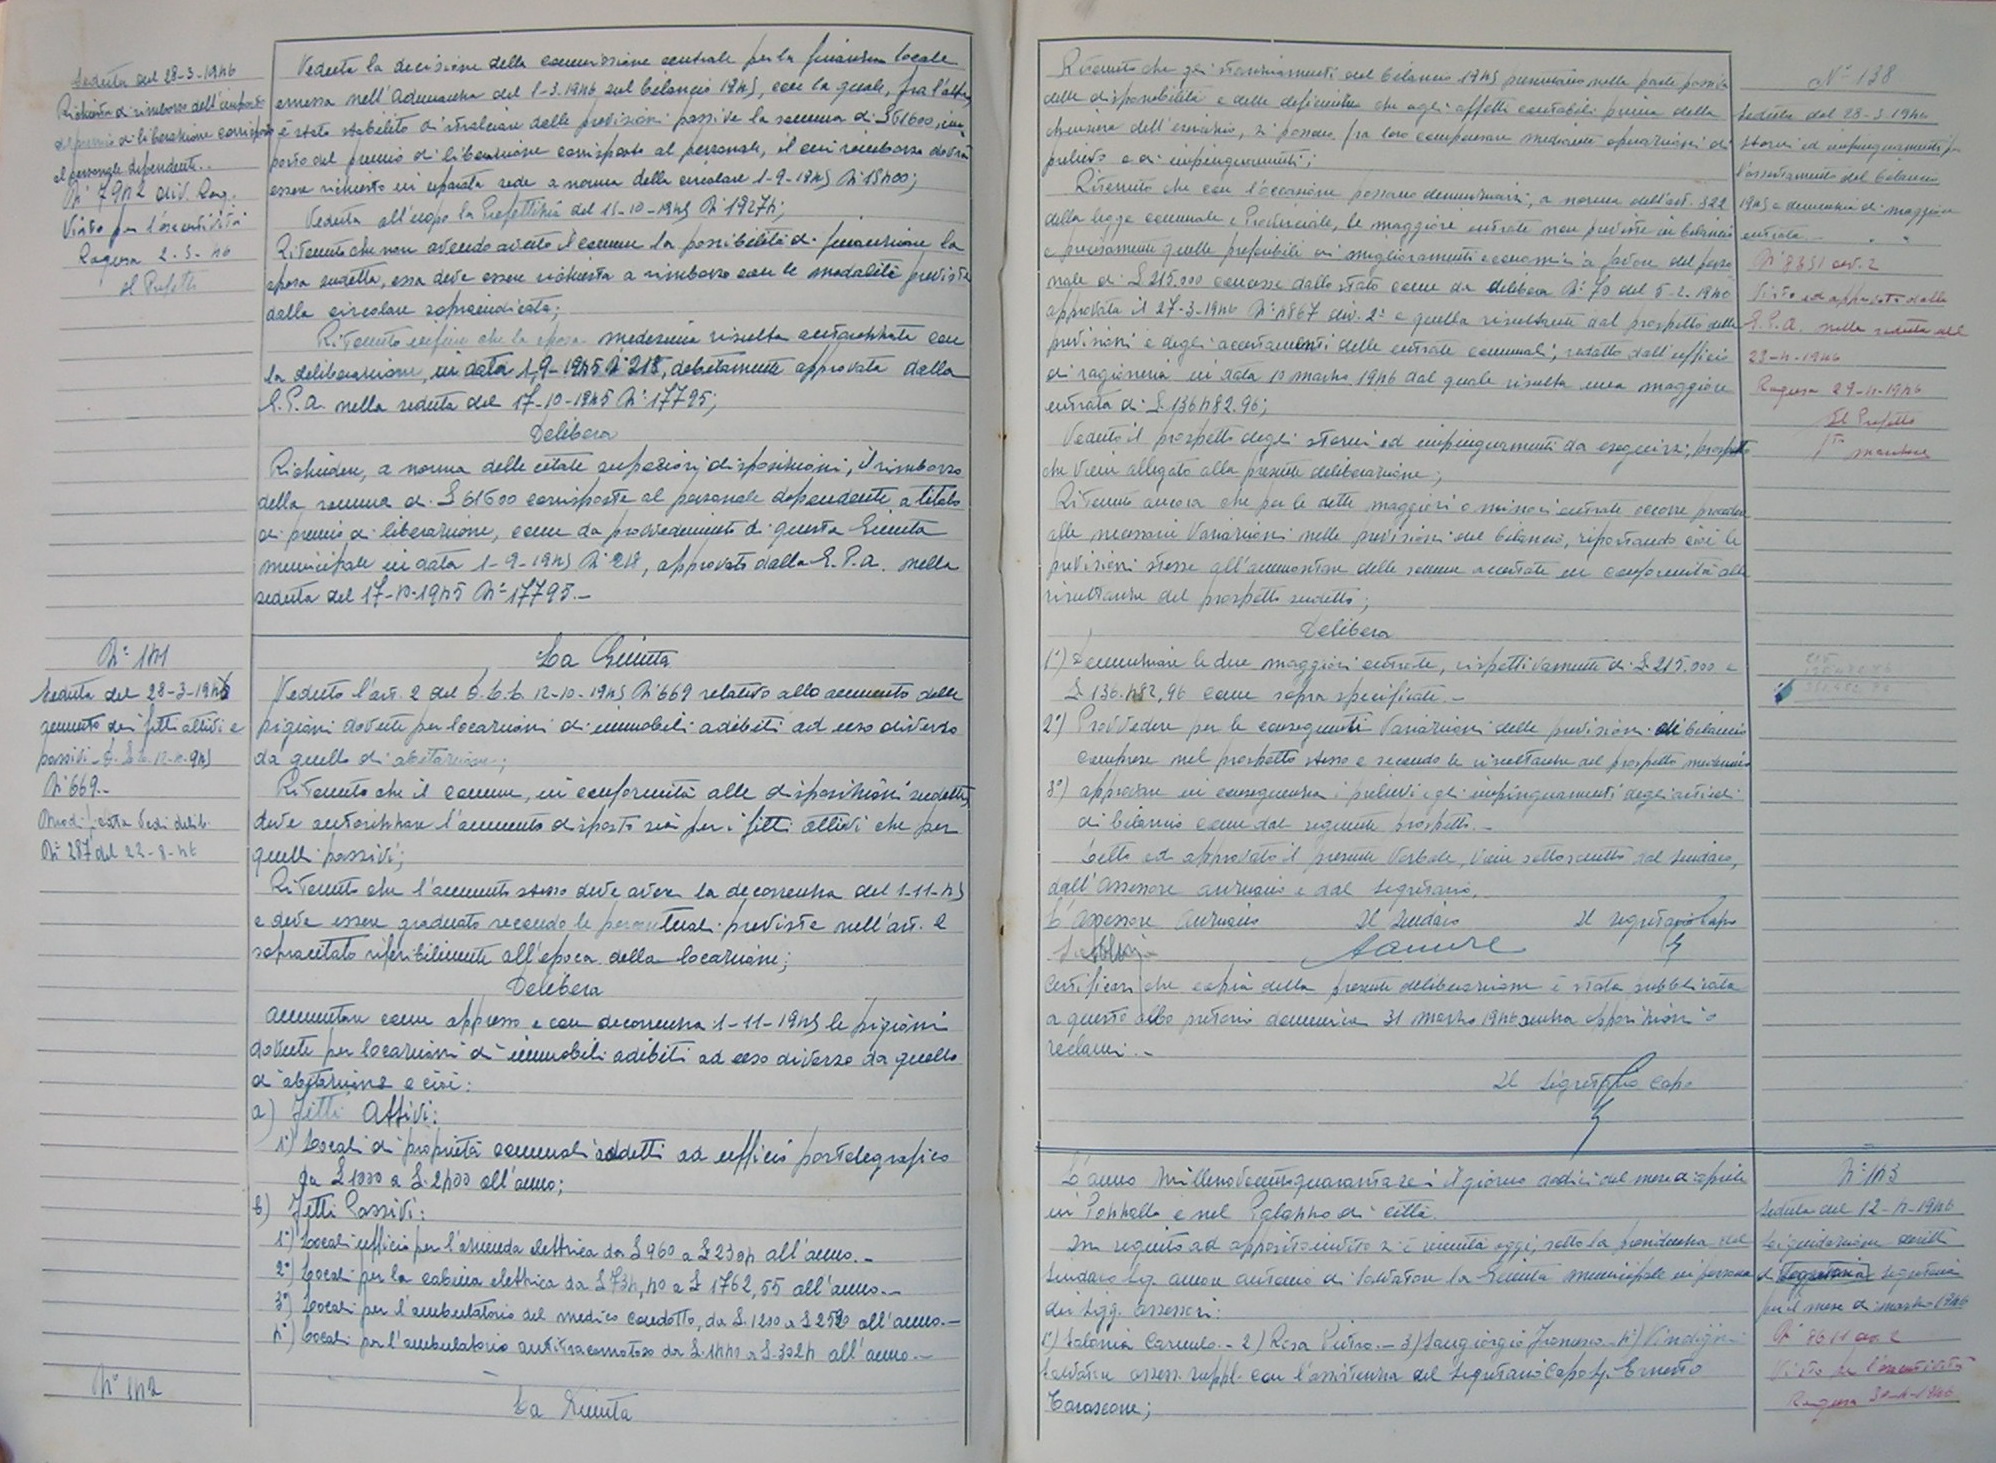 Seduta del 28-3-1946
Richiesta di rimborso dell'importo
del premio di liberazione corrisposto
al personale dipendente.
N° 7942 div. Rag.
Visto per l'esecutività
Ragusa 2-5-46
Il Prefetto
Veduta la decisione della commissione centrale per la finanza locale
emessa nell'adunanza del 1-3-1946 sul bilancio 1945, con la quale, fra l'altro,
è stato stabilito di stralciare dalle previsioni passive la somma di £ 61600, im
porto del premio di liberazione corrisposto al personale, il cui rimborso dovrà
essere richiesto in separata sede a norma della circolare 1-9-1945 N° 15400;
Veduta all'uopo la Prefettizia del 15-10-1945 N° 19274;
Ritenuto che non avendo avuto il comune la possibilità di finanziare la
spesa sudetta, essa deve essere richiesta a rimborso con le modalità previste
dalla circolare sopraindicata;
Ritenuto infine che la spesa medesima risulta autorizzata con
la deliberazione, in data 1-9-1945 N° 218, debitamente approvata dalla
G.P.A. nella seduta del 17-10-1945 N° 17795;
Delibera
Richiedere, a norma delle citate superiori disposizioni, il rimborso
della somma di £ 61600 corrisposte al personale dipendente a titolo
di premio di liberazione, come da provvedimento di questa Giunta
municipale in data 1-9-1945 N° 218, approvato dalla G.P.A. nella
seduta del 17-10-1945 N° 17795.-
N° 141
Seduta del 28-3-1946
aumento dei fitti attivi e
passivi - D.L.L. 12-10-945
N° 669.-
Modificata Vedi delib.
N° 287 del 22-8-46
La Giunta
Veduto l'art. 2 del D.L.L. 12-10-1945 N° 669 relativo allo aumento delle
pigioni dovute per locazioni di immobili adibiti ad uso diverso
da quello di abitazione;
Ritenuto che il comune, in conformità alle disposizioni sudette,
deve autorizzare l'aumento disposto sia per i fitti attivi che per
quelli passivi;
Ritenuto che l'aumento stesso deve avere la decorrenza del 1-11-45
e deve essere graduato secondo le percentuali previste nell'art. 2
sopracitato riferibilmente all'epoca della locazione;
Delibera
aumentare come appresso e con decorrenza 1-11-1945 le pigioni
dovute per locazioni di immobili adibiti ad uso diverso da quello
di abitazione e cioè:
a) Fitti Attivi:
1°) Locali di proprietà comunali addetti ad ufficio postelegrafico
da £ 1000 a £. 2400 all'anno;
b) Fitti Passivi:
1°) Locali ufficio per l'azienda elettrica da £ 960 a £ 2304 all'anno.-
2°) Locali per la cabina elettrica da £ 734,40 a £ 1762,55 all'anno.-
3°) Locali per l'ambulatorio del medico condotto, da £. 1200 a £ 2520 all'anno.-
4°) Locali per l'ambulatorio antitracomatoso da £. 1440 a £. 3024 all'anno.-
N° 142
La Giunta
Ritenuto che gli stanziamenti del bilancio 1945 presentano nella parte passiva
delle disponibilità e delle deficienze che agli effetti contabili prima della
chiusura dell'esercizio, si possono fra loro compensare mediante operazioni di
prelievo e di impinguamenti;
Ritenuto che con l'occasione possono denunziarsi, a norma dell'art. 322
della legge comunale e Provinciale, le maggiori entrate non previste in bilancio
e precisamente quelle preferibili ai miglioramenti economici a favore del perso
nale di £ 215.000 concesse dallo stato come da delibera N° 70 del 5-2-1946
approvata il 27-3-1946 N° 4867 div. 2ª e quella risultante dal prospetto delle
previsioni e degli accertamenti delle entrate comunali, redatto dall'ufficio
di ragioneria in data 10 marzo 1946 dal quale risulta una maggiore
entrata di £ 136482.96;
Veduto il prospetto degli storni ed impinguamenti da eseguirsi, prospetto
che viene allegato alla presente deliberazione;
Ritenuto ancora che per le dette maggiori o minori entrate occorre procedere
alle necessarie Variazioni nelle previsioni del bilancio, riportando cioè le
previsioni stesse all'ammontare delle somme accertate in conformità alle
risultanze del prospetto sudetto;
Delibera
1°) Denunziare le due maggiori entrate, rispettivamente di £ 215.000 e
£ 136.482,96 come sopra specificate.-
2°) Provvedere per le conseguenti Variazioni delle previsioni di bilancio
comprese nel prospetto stesso e secondo le risultanze del prospetto medesimo
3°) approvare in conseguenza i prelievi e gli impinguamenti degli articoli
di bilancio come dal seguente prospetto.-
Letto ed approvato il presente Verbale, viene sottoscritto dal Sindaco,
dall'Assessore anziano e dal Segretario.
L'assessore anziano Il Sindaco Il Segretario Capo
Certificasi che copia della presente deliberazione è stata pubblicata
a questo albo pretorio domenica 31 marzo 1946 senza opposizioni o
reclami.-
Il Segretario Capo
N° 138
Seduta del 28-3-1946
Storni ed impinguamenti per
l'assestamento del bilancio
1945 e denunzia di maggiore
entrata.-
N° 8351 div. 2
Visto ed approvato dalla
G.P.A. nella seduta del
23-4-1946
Ragusa 29-4-1946
Il Prefetto
L'anno millenovecentoquarantasei il giorno dodici del mese di aprile
in Pozzallo e nel Palazzo di città.
In seguito ad apposito invito si è riunita oggi, sotto la presidenza del
Sindaco Sig. Amore Antonio di Salvatore la Giunta municipale in persona
dei Sigg. assessori:
1°) Salonia Carmelo.- 2) Rosa Pietro.- 3) Sangiorgio Francesco.- 4°) Vindigni
Salvatore assess. suppl. con l'assistenza del Segretario Capo Sig. Ernesto
Carascone;
N° 143
Seduta del 12-4-1946
Liquidazione diritti
di Segreteria Segreteria
per il mese di marzo 1946
N° 8611 div. 2
Visto per l'esecutività
Ragusa 30-4-1946